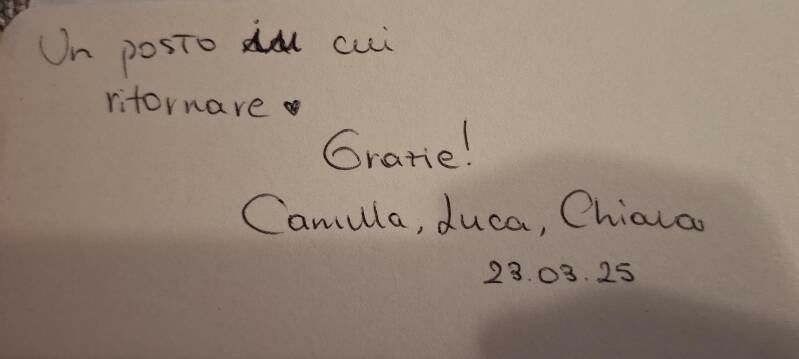 Un posto in cui
ritornare ♥
Grazie!
Camilla, Luca, Chiara
23.03.25